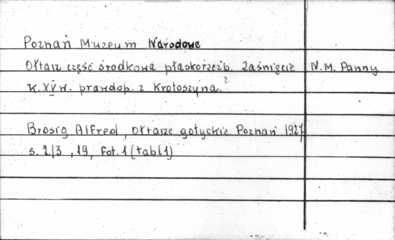 Poznań Muzeum Narodowe
Ołtarz część środkowa płaskorzeźb. Zaśnięcie N.M. Panny
k. XV w. prawdop. z Krotoszyna. 2
Brosig Alfred, Ołtarze gotyckie. Poznań 1927
s. 2/3, 19, Fot. 1 (tabl 1)